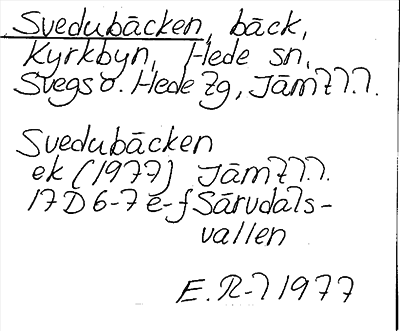 Svedubäcken, bäck,
Kyrkbyn, Hede sn,
Svegs o. Hede Zg, Jämtl.l.
Svedubäcken
ek (1977) Jämtl.l.
17D 6-7 e-f Särvdals-
vallen
E. R-l 1977